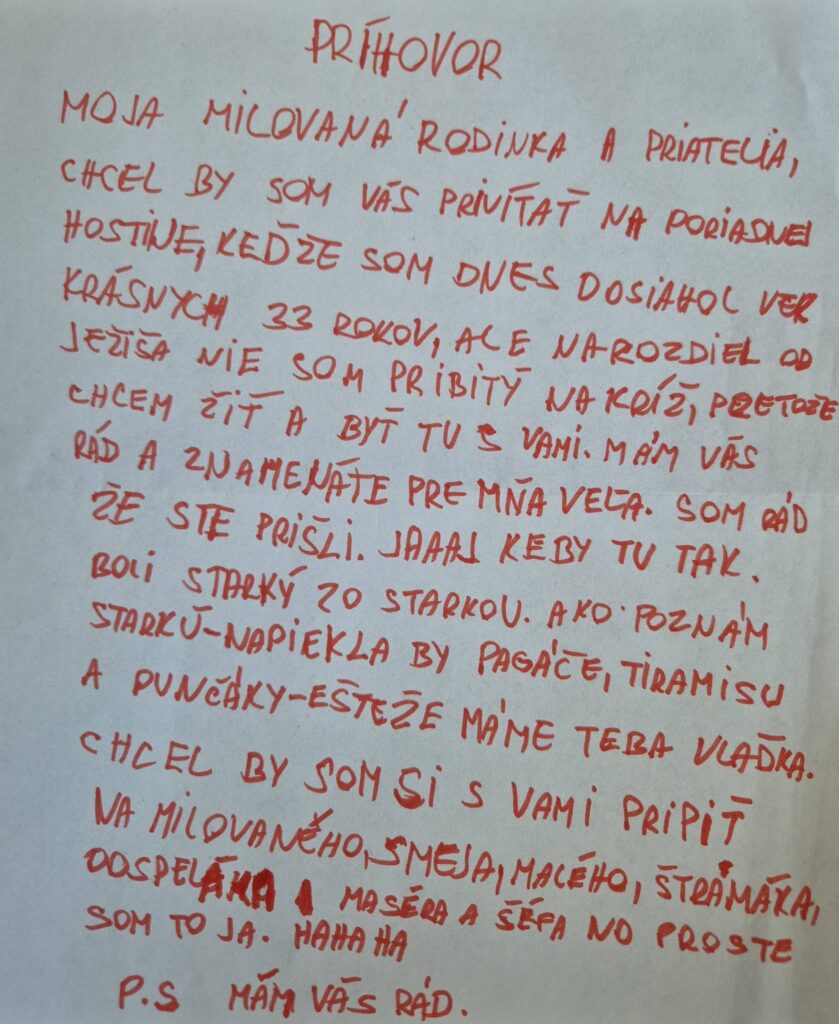 PRÍHOVOR
MOJA MILOVANÁ RODINKA A PRIATELIA,
CHCEL BY SOM VÁS PRIVÍTAŤ NA PORIADNEJ
HOSTINE, KEĎŽE SOM DNES DOSIAHOL VEK
KRÁSNYCH 33 ROKOV, ALE NAROZDIEL OD
JEŽIŠA NIE SOM PRIBITÝ NA KRÍŽ, PRETOŽE
CHCEM ŽIŤ A BYŤ TU S VAMI. MÁM VÁS
RÁD A ZNAMENÁTE PRE MŇA VEĽA. SOM RÁD
ŽE STE PRIŠLI. JAAAJ KEBY TU TAK.
BOLI STARKÝ ZO STARKOU. AKO POZNÁM
STARKÚ-NAPIEKLA BY PAGÁČE, TIRAMISU
A PUNČÁKY-EŠTEŽE MÁME TEBA VLAĎKA.
CHCEL BY SOM SI S VAMI PRIPIŤ
NA MILOVANÉHO, SMEJA, MALÉHO, ŠTRAMÁKA,
DOSPELÁKA MASÉRA A ŠÉFA NO PROSTE
SOM TO JA. HAHAHA
P.S MÁM VÁS RÁD.